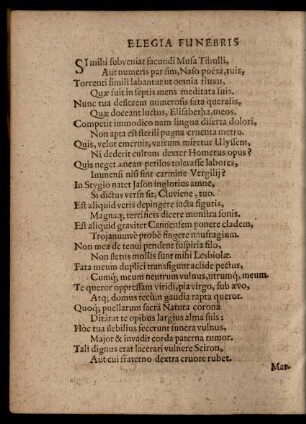 ELEGIA FUNEBRIS
SI mihi subveniat facundi Musa Tibulli,
Aut numeris par sim, Naso poëta, tuis,
Torrenti simili labantur ut omnia fluxu,
Quæ fuit in septis mens meditata suis.
Nunc tua deflerem numerosis fata querelis,
Quæ doceant luctus, Elisabetha, meos.
Competit immodico nam lingua diserta dolori,
Non apta est sterili pugna cruenta metro.
Quis, velut emeritis, vastum miretur Ulyssem,
Ni dederit cultum dexter Homerus opus?
Quis neget Ænean perilos tolerasse labores,
Immensi nisi sint carmine Vergilij?
In Stygio natet Jason inglorius amne,
Si dictus versu sit, Cluviene, tuo.
Est aliquid veris depingere ficta figuris,
Magnaq; terrificis dicere monstra sonis.
Est aliquid graviter Cannensem ponere cladem,
Trojanumve probè fingere naufragium.
Non mea de tenui pendent suspiria filo,
Non fletus mollis sunt mihi Lesbiolæ.
Fata meum duplici transfigunt acide pectus,
Cumq; meum neutrum vulnus, utrumq; meum.
Te queror oppressam viridi, pia virgo, sub ævo,
Atq; domus tecùm gaudia rapta queror.
Quoq; puellarum sacra Natura corona
Ditârat te opibus largius alma suis:
Hôc tua flebilius fecerunt funera vulnus,
Major & invadit corda paterna tumor.
Tali dignus erat lacerari vulnere Sciron,
Aut cui fraterno dextra cruore rubet.
Mar-